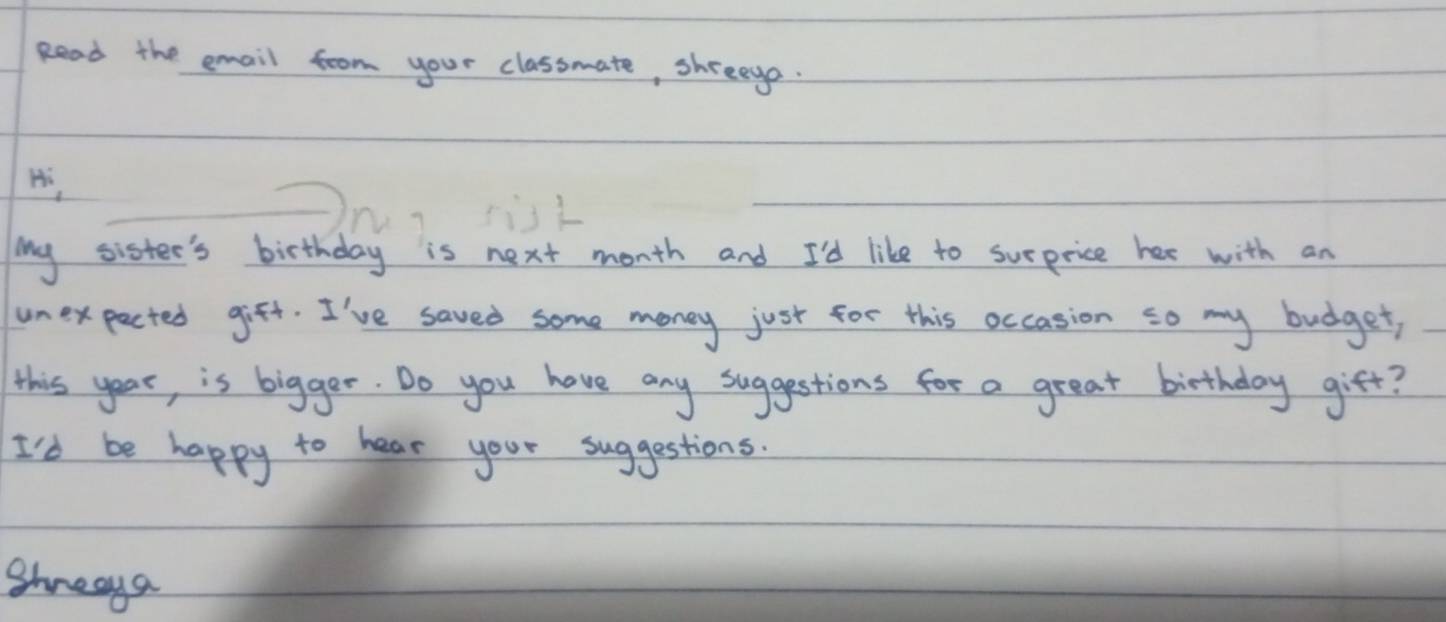 Read the email from your classmate, Shreeya.
Hi,
My sister's birthday is next month and I'd like to surprice her with an
unexpected gift. I've saved some money just for this occasion so my budget,
this year, is bigger. Do you have any suggestions for a great birthday gift?
I'd be happy to hear your suggestions.
Shreeya